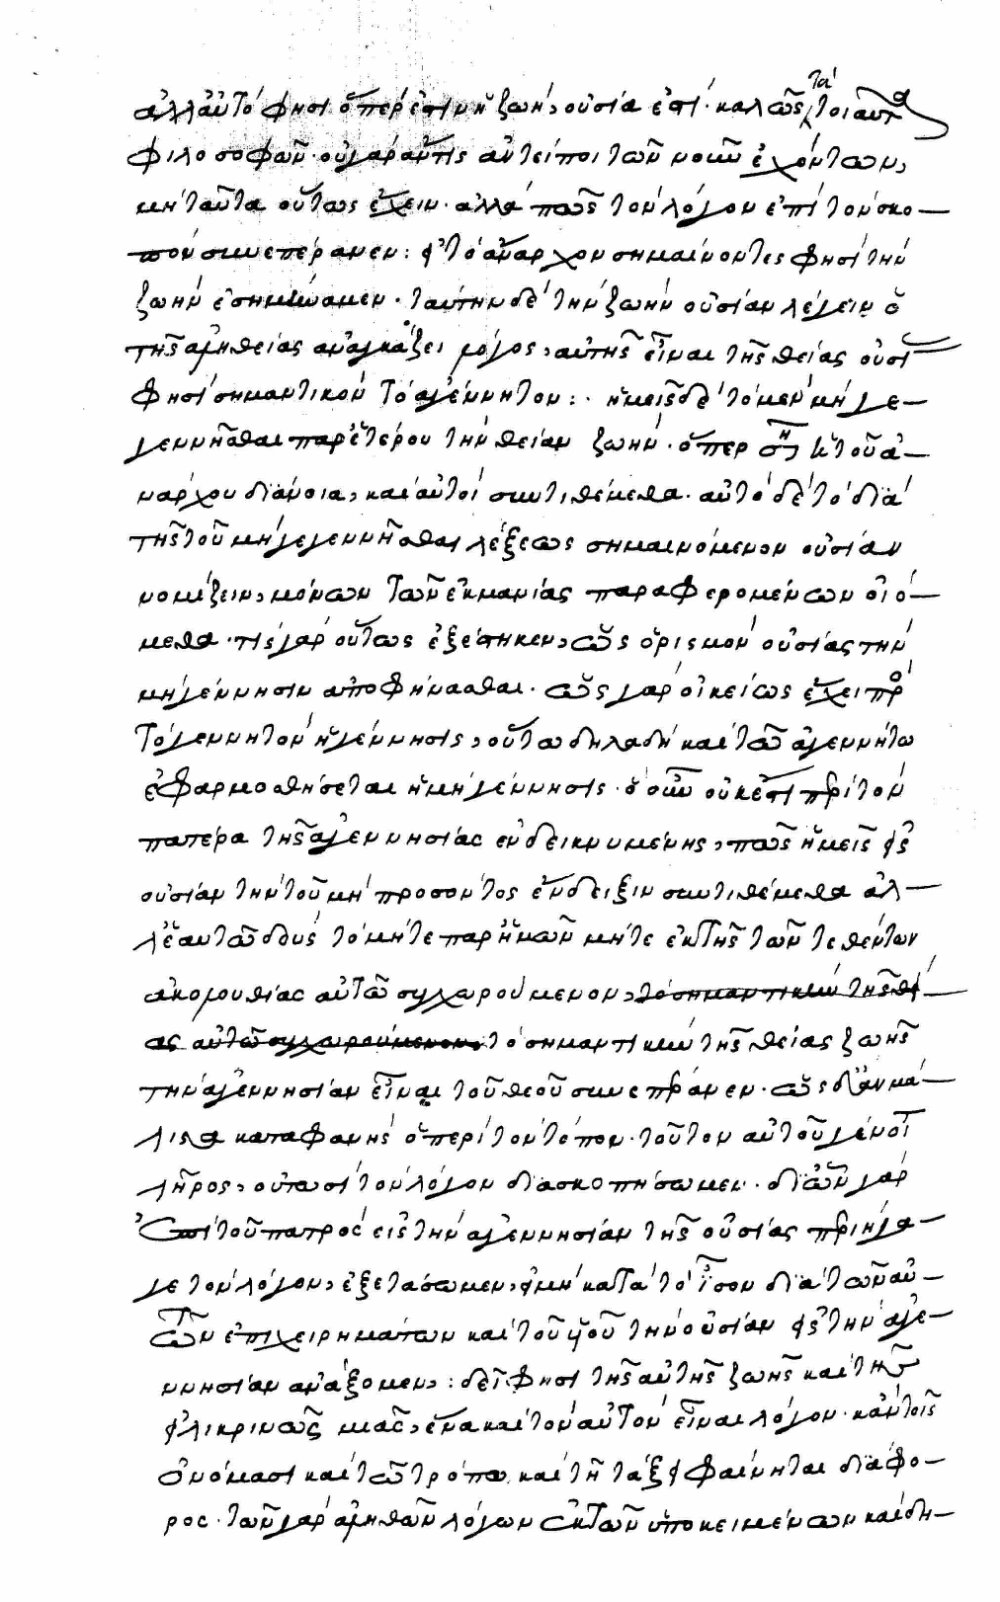 ἀλλ' αὐτό φησι ὅπερ ἐστὶν ἡ ζωή, οὐσία ἐστί· καλῶς τὰ τοιαῦτα
φιλοσοφῶν· οὐ γὰρ ἄν τις ἀντείποι τῶν νοῦν ἐχόντων,
μὴ ταῦτα οὕτως ἔχειν· ἀλλὰ πῶς τὸν λόγον ἐπὶ τὸν σκο-
πὸν συνεπέρανεν: εἰ τὸ ἄναρχον σημαίνοντες φησὶ τὴν
ζωὴν ἐσημάναμεν· ταύτην δὲ τὴν ζωὴν οὐσίαν λέγειν ὁ
τῆς ἀληθείας ἀναγκάζει λόγος, αὐτῆς εἶναι τῆς θείας οὐσί
φησὶ σημαντικὸν τὸ ἀγέννητον: · ἡμεῖς δὲ τὸ μὲν μὴ γε-
γεννῆσθαι παρ' ἑτέρου τὴν θείαν ζωήν· ὅπερ καὶ τοῦ ἀ-
νάρχου διάνοια, καὶ αὐτοὶ συντιθέμεθα· αὐτὸ δὲ τὸ διὰ
τῆς τοῦ μὴ γεγεννῆσθαι λέξεως σημαινόμενον οὐσίαν
νομίζειν, μόνων τῶν ἐκ μανίας παραφερομένων οἰό-
μεθα· τίς γὰρ οὕτως ἐξέστηκεν, ὡς ὁρισμὸν οὐσίας τὴν
μὴ γέννησιν ἀποφήνασθαι· ὡς γὰρ οἰκείως ἔχει πρ
τὸ γεννητὸν ἡ γέννησις, οὕτω δηλαδὴ καὶ τῷ ἀγεννήτω
ἐφαρμοσθήσεται ἡ μὴ γέννησις· ὃ οὖν οὐκ ἔστι περὶ τὸν
πατέρα τῆς ἀγεννησίας ἐνδεικνυμένης, πῶς ἡμεῖς εἰς
οὐσίαν τὴν τοῦ μὴ προσόντος ἔνδειξιν συντιθέμεθα ἀλ-
λ' ἑαυτῷ δοὺς τὸ μήτε παρ' ἡμῶν μήτε ἐκ τῆς τῶν τεθέντων
ἀκολουθίας αὐτῷ συγχωρούμενον, τὸ σημαντικὸν τῆς θεί-
ας αὐτῷ συγχωρούμενον, τὸ σημαντικὸν τῆς θείας ζωῆς
τὴν ἀγεννησίαν εἶναι τοῦ θεοῦ συνεπέρανεν· ὡς δ' ἂν μά-
λιστα καταφανὴς ὁ περὶ τὸν τόπον· τοῦτον αὐτοῦ γένοιτ
λῆρος, οὑτωσὶ τὸν λόγον διασκοπήσωμεν· δι' ὧν γὰρ
ἐπὶ τοῦ πατρὸς εἰς τὴν ἀγεννησίαν τῆς οὐσίας περιήγα-
γε τὸν λόγον, ἐξετάσωμεν, εἰ μὴ κατὰ τὸ ἴσον διὰ τῶν αὐ-
τῶν ἐπιχειρημάτων καὶ τοῦ υἱοῦ τὴν οὐσίαν εἰς τὴν ἀγε-
ννησίαν ἀνάξομεν, : δεῖ φησι τῆς αὐτῆς ζωῆς καὶ τῆς
εἰλικρινῶς μιᾶς, ἕνα καὶ τὸν αὐτὸν εἶναι λόγον· κἂν τοῖς
ὀνόμασι καὶ τῷ τρόπω καὶ τῇ τάξει φαίνηται διάφο-
ρος· τῶν γὰρ ἀληθῶν λόγων ἐκ τῶν ὑποκειμένων καὶ δη-